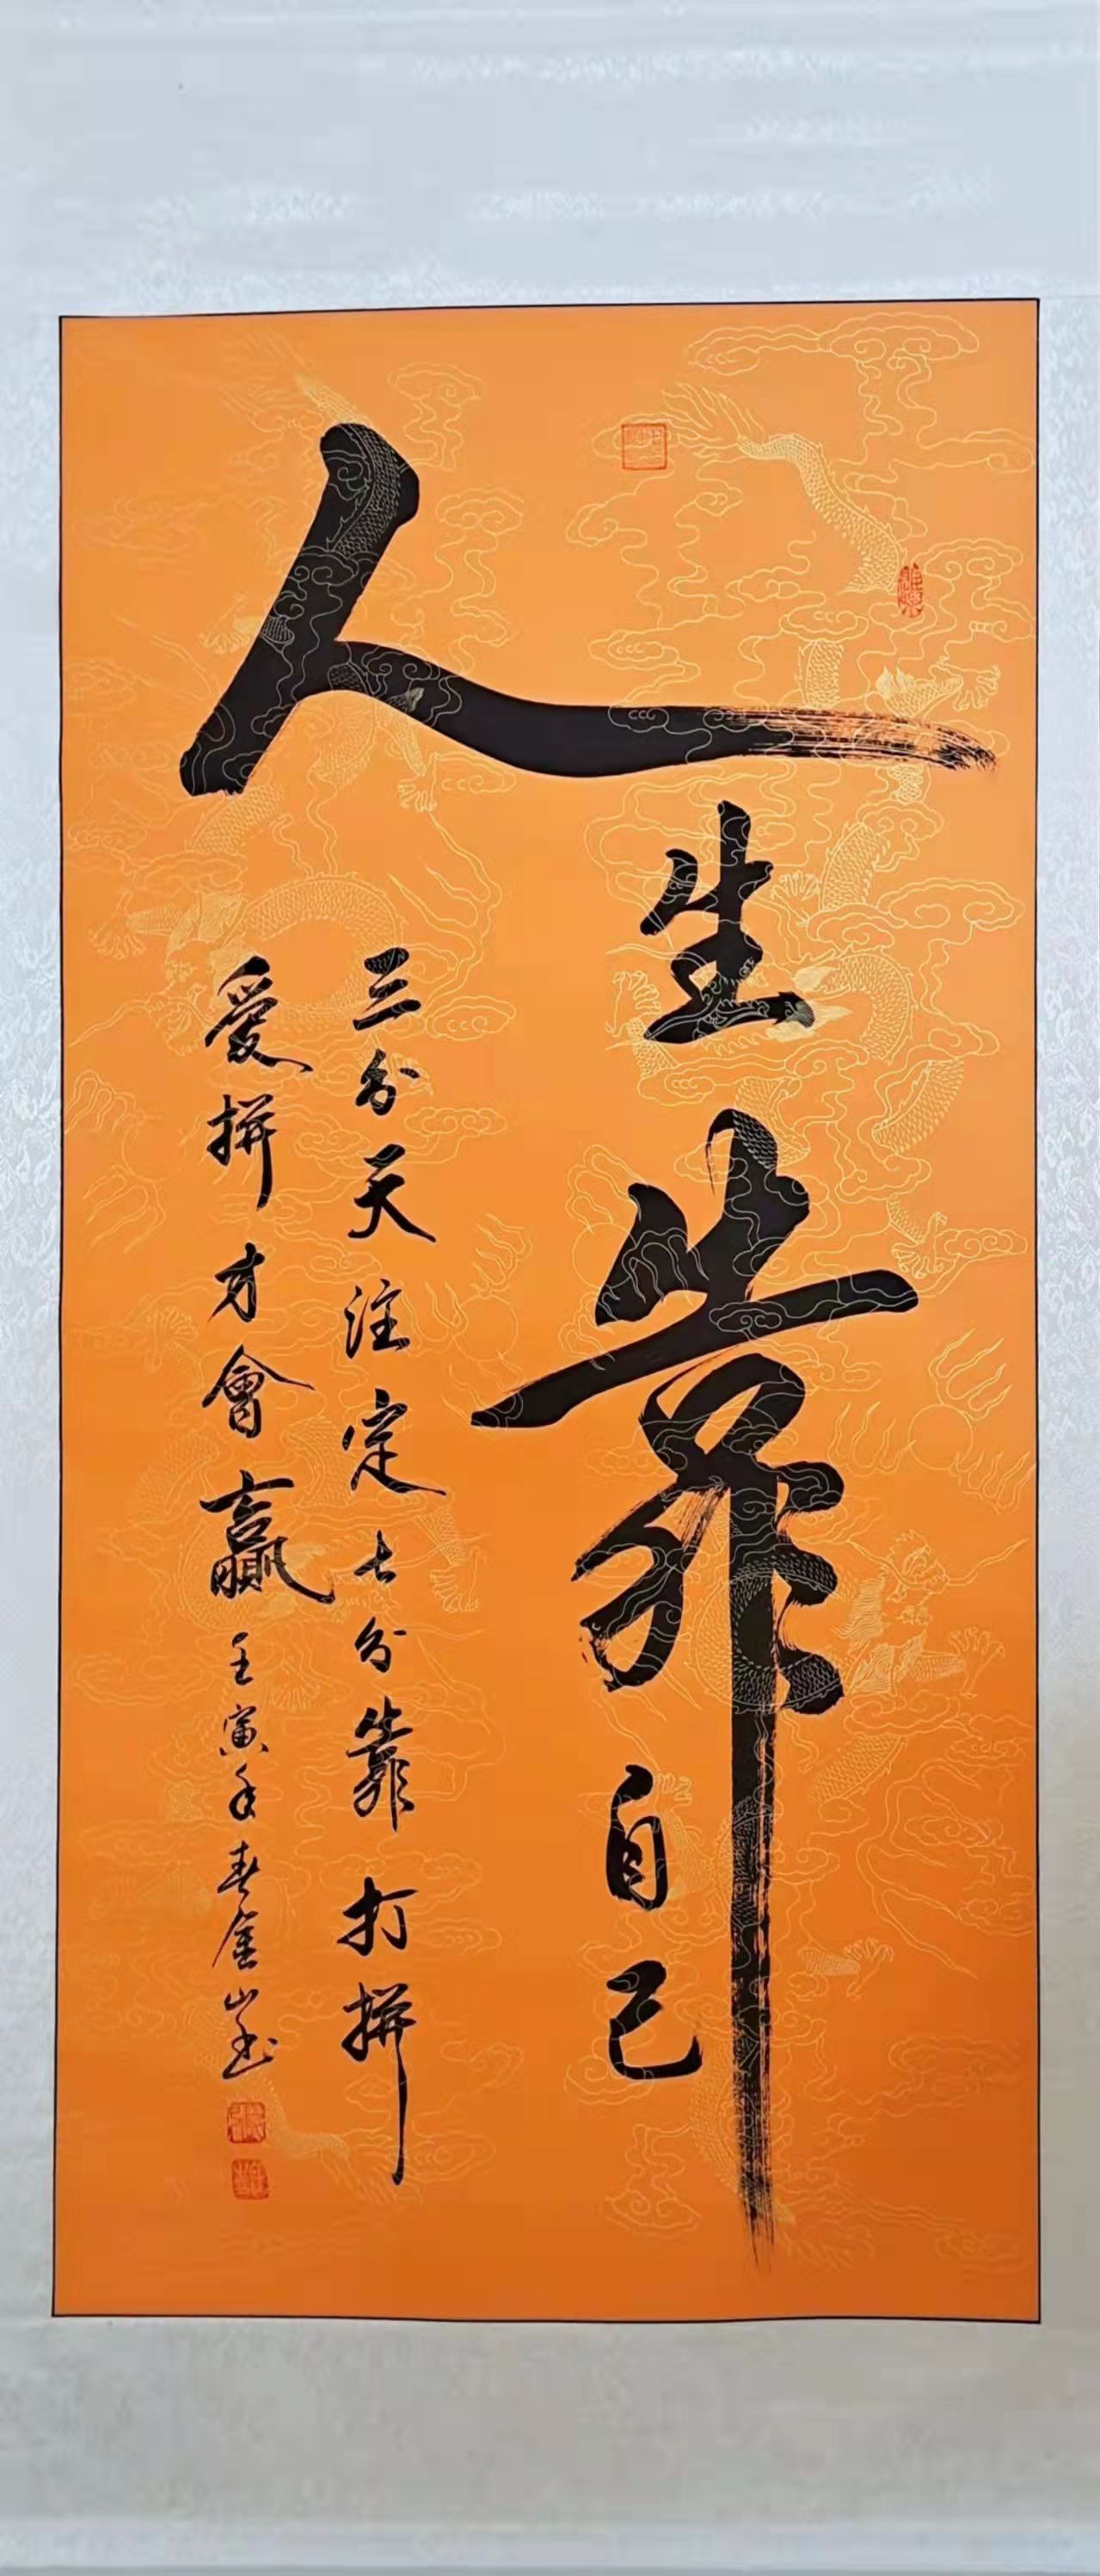 人生靠自己
三分天注定七分靠打拼
愛拼才會贏
壬寅年春金山書